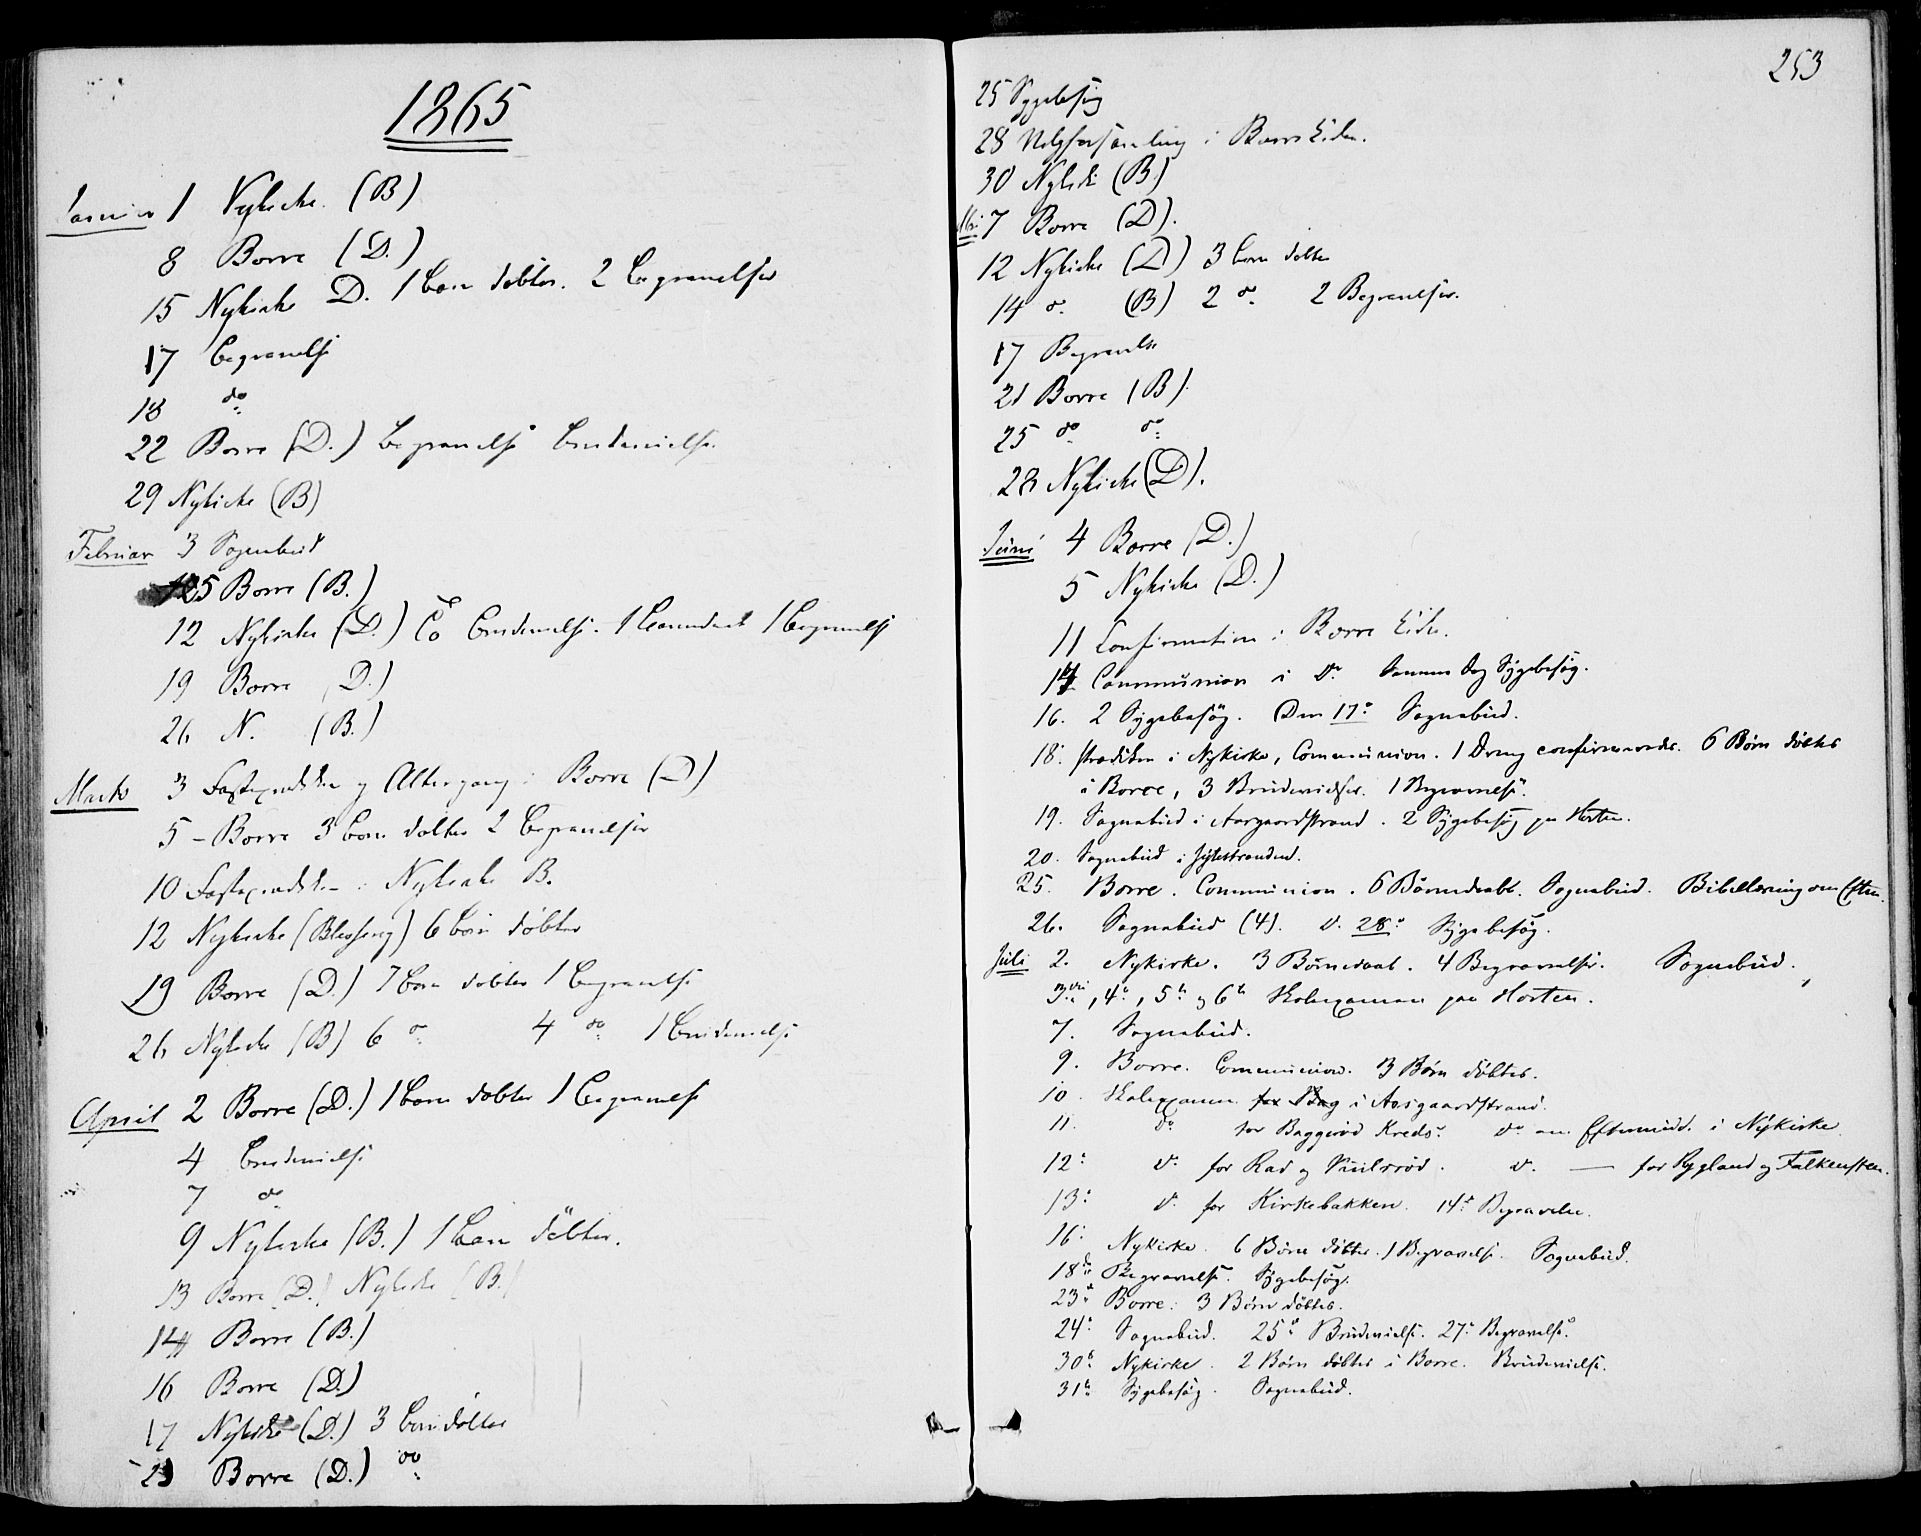 1865
Januar 1 Nykirke. (B)
8 Borre (D.)
15 Nykirke D. 1 barn døbter. 2 begravelser
17 begravelse
18 do
22 Borre (D.) begravelse brudevielse.
29 Nykirke (B)
Februar 3 Sognebud
5 Borre (B.)
12 Nykirke (D.) brudevielse. 1 1 begravelse
19 Borre (D.)
26 N. (B.)
Marts 3 Fasteprædiken og Altergang i Borre (D)
5 - Borre 3 børn døbter 2 begravelser
10 Fasteprædiken i Nykirke B.
12 Nykirke (Blessing) 6 børn døbter
19 Borre (D.) 7 børn døbter 1 begravelse
26 Nykirke (B) 6 do 4 do 1 brudevielse
April 2 Borre (D.) 1 barn døbter 1 begravelse
4 brudevielse
7 do
9 Nykirke (B.) 1 barn døbter.
13 Borre (D.) Nykirke (B.)
14 Borre (B.)
16 Borre (D.)
17 Nykirke (D.) 3 børn døbter
23 Borre (D.) do
253
25 Sygebesøg
28 Valgforsamling i Borre Kirke.
30 Nykirke (B.)
Mai 7 Borre (D).
12 Nykirke (D) 3 børn døbter
14 do (B) 2 do 2 Begravelser.
17 Begravelse
21 Borre (B)
25 do do
28 Nykirke (D).
Juni 4 Borre (D.)
5 Nykirke (D.)
11 Confirmation i Borre Kirke.
14 Communion i do Samme Dag Sygebesøg.
16. 2 Sygebesøg. Den 17de Sognebud.
18. Prædiken i Nykirke, Communion. 1 Dreng confirmerede. 6 Børn døbtes
i Borre, 3 Brudevielser. 1 Begravelse.
19. Sognebud i Aasgaardstrand. 2 Sygebesøg paa Horten.
20. Sognebud i
25. Borre. Communion. 6 Børnedaab. Sognebud. Bibellæsning om Efterm.
26. Sognebud (4). d. 28de Sygebesøg.
Juli 2. Nykirke. 3 Børnedaab. 4 Begravelser. Sognebud.
3die, 4de, 5te og 6te Skoleexamen paa Horten.
7. Sognebud.
9. Borre. Communion. 3 Børn døbtes.
10. Skoleexamen i Aasgaardstrand.
11. do for Baggerød Kreds. do om Eftermidd. i Nykirke.
12. do for Rad og do — for Rygland og Falkensten.
13. do for Kirkebakken. 14de Begravelse.
16. Nykirke. 6 Børn døbtes. 1 Begravelse. Sognebud.
18de Begravelse. Sygebesøg.
23de Borre. 3 Børn døbtes.
24de Sognebud. 25de Brudevielse. 27de Begravelse.
30te Nykirke. 2 Børn døbtes i Borre. Brudevielse.
31te Sygebesøg. Sognebud.